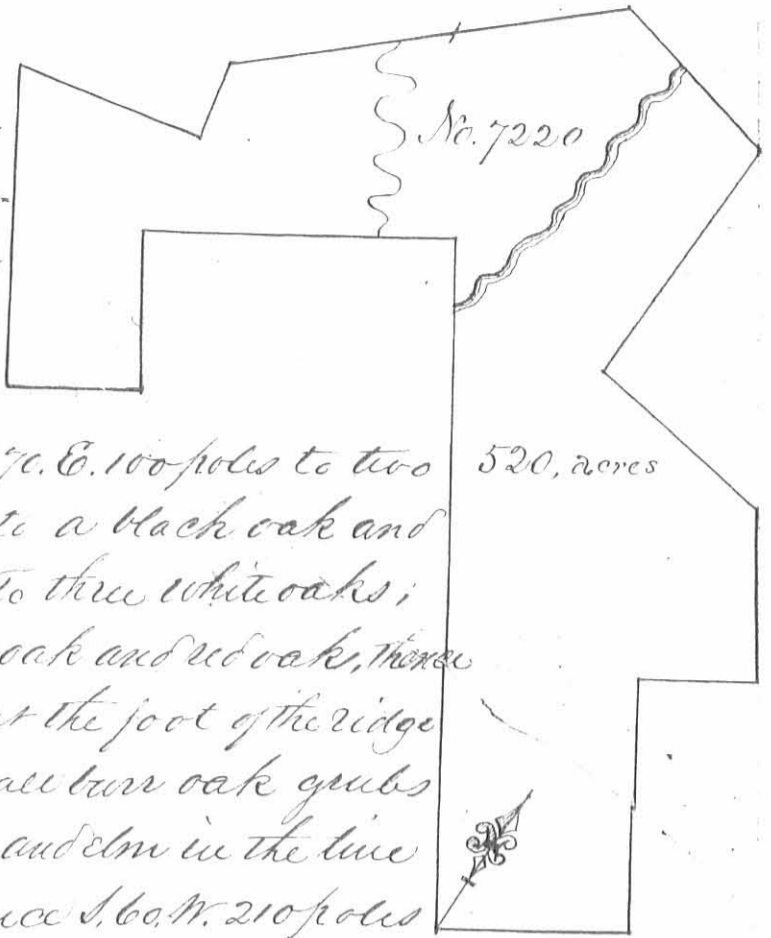 No. 7220
70. E. 100 poles to two
520, acres
to a black oak and
to three white oaks;
oak and red oaks, thence
at the foot of the ridge
burr oak grubs
and elm in the line
S. 60. W. 210 poles